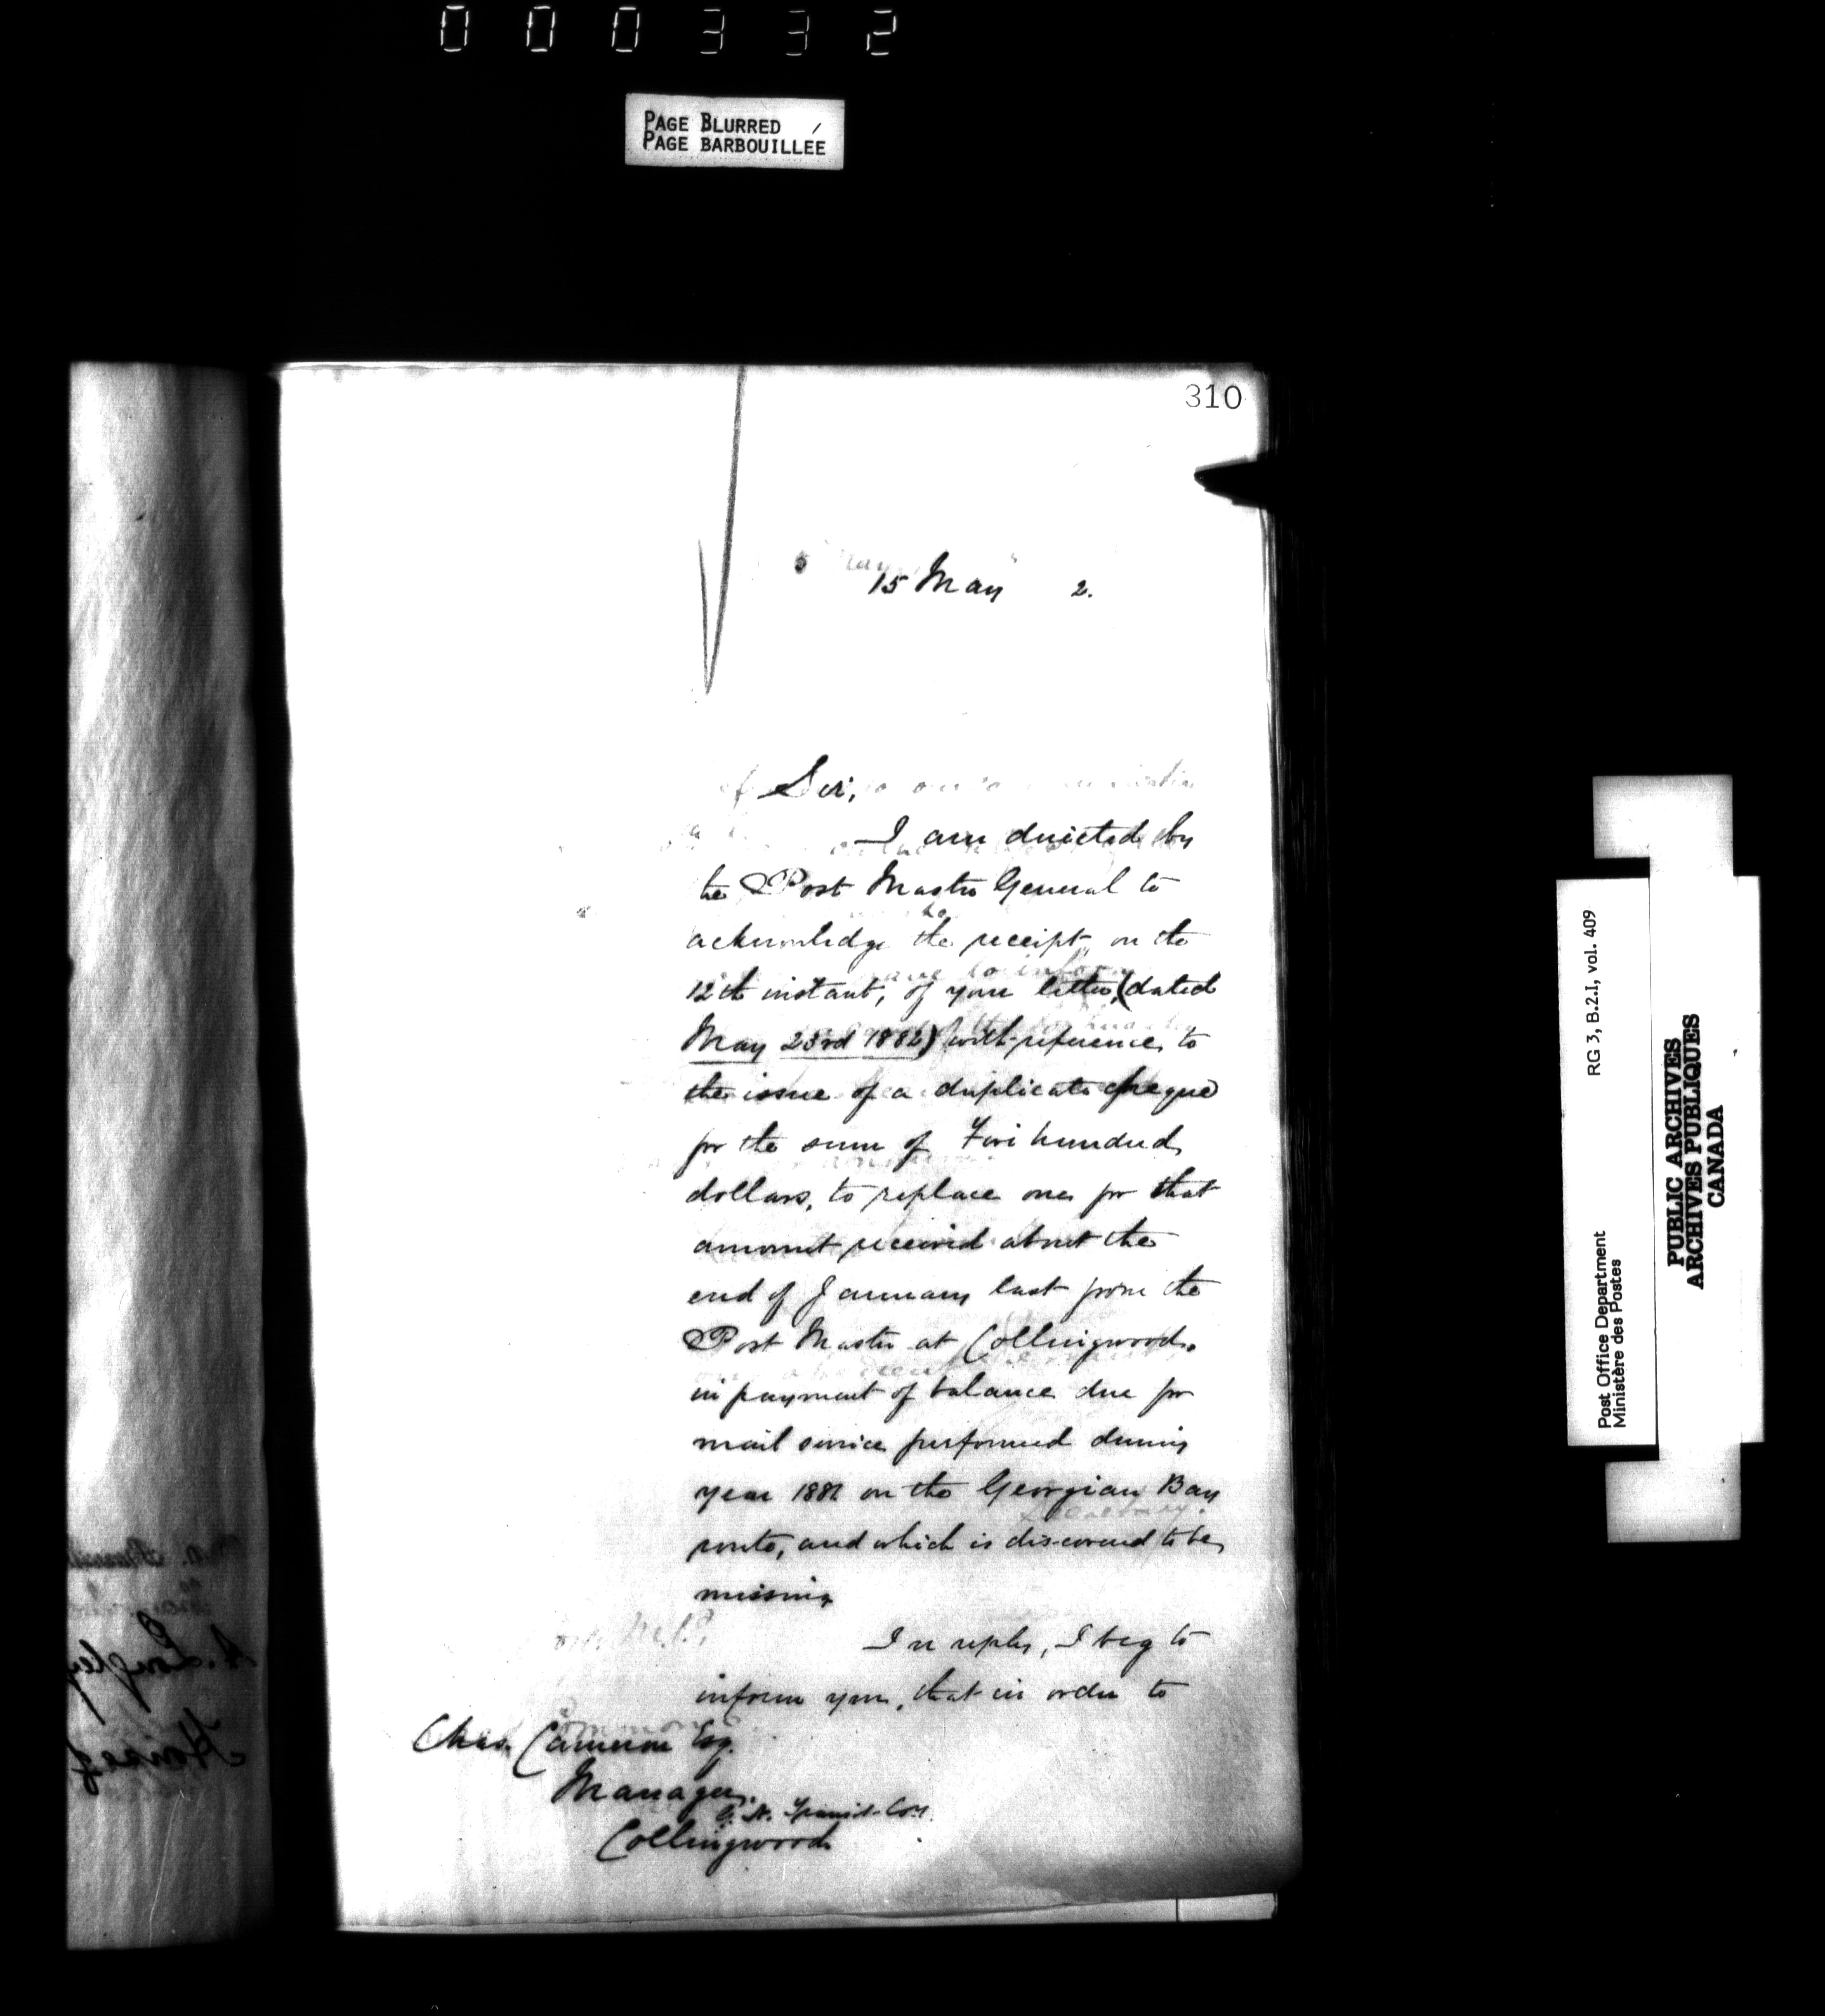 000332
PAGE BLURRED
PAGE BARBOUILLÉE
310
15 May 2.
Sir,
I am directed by
the Post Master General to
acknowledge the receipt, on the
12th instant, of your letter, (dated
May 23rd 1882) with reference to
the issue of a duplicate cheque
for the sum of Five hundred
dollars, to replace one for that
amount received about the
end of January last from the
Post Master at Collingwood,
in payment of balance due for
mail service performed during
year 1881 on the Georgian Bay
route, and which is discovered to be
missing
In reply, I beg to
inform you, that in order to
Chas. Cameron Esq.
Manager,
G. N. Transit Coy
Collingwood
RG 3, B.2.I, vol. 409
Post Office Department
Ministère des Postes
PUBLIC ARCHIVES
ARCHIVES PUBLIQUES
CANADA